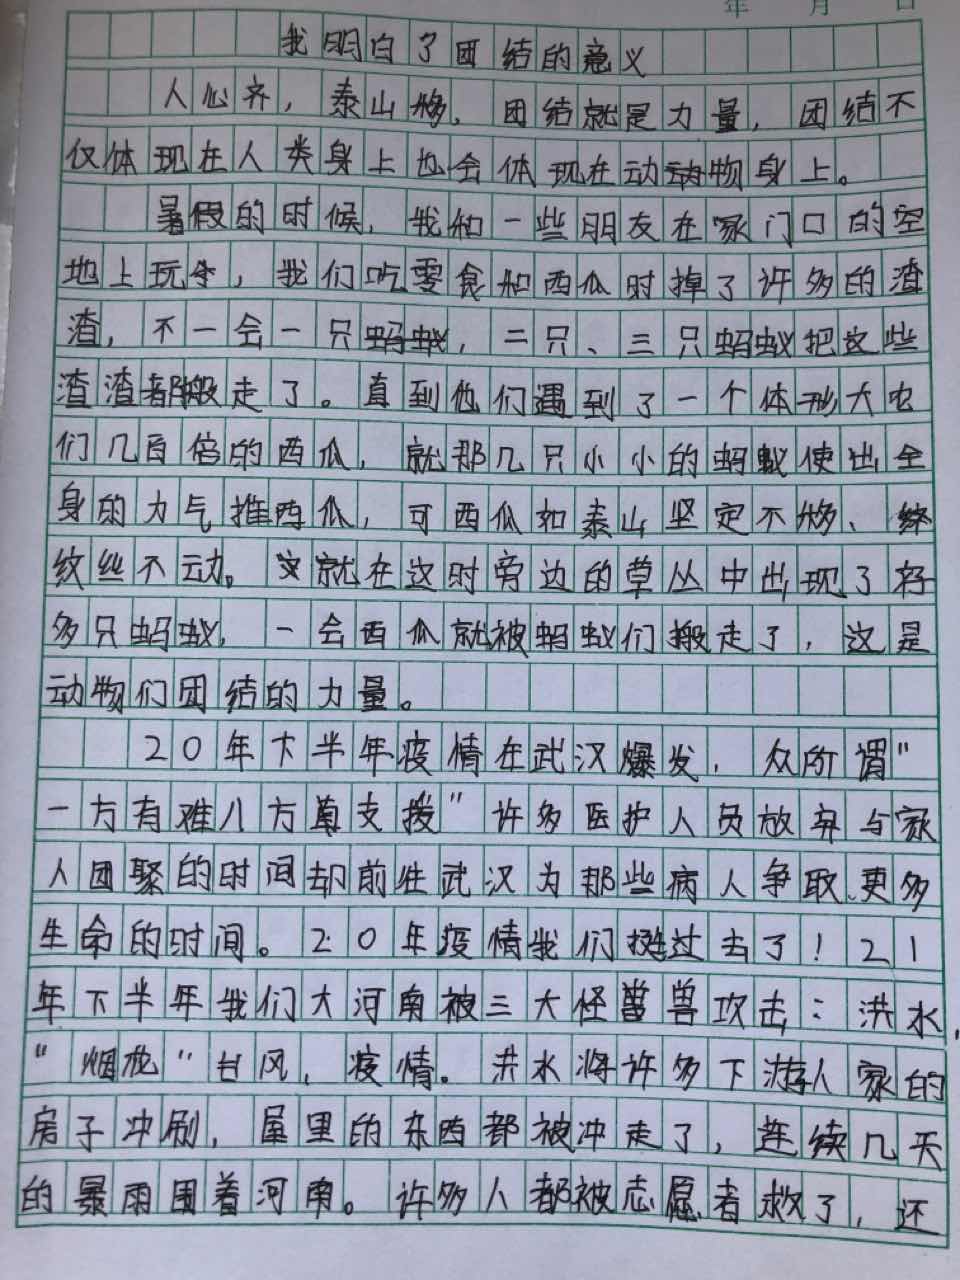 年 月 日
我明白了团结的意义
人心齐，泰山移，团结就是力量，团结不
仅体现在人类身上也会体现在动物身上。
暑假的时候，我和一些朋友在家门口的空
地上玩，我们吃零食和西瓜时掉了许多的渣
渣，不一会一只蚂蚁，二只、三只蚂蚁把这些
渣渣都搬走了。直到他们遇到了一个体形大它
们几百倍的西瓜，就那几只小小的蚂蚁使出全
身的力气推西瓜，可西瓜如泰山坚定不移、
纹丝不动。就在这时旁边的草丛中出现了好
多只蚂蚁，一会西瓜就被蚂蚁们搬走了，这是
动物们团结的力量。
20年下半年疫情在武汉爆发，众所谓"
一方有难八方支援"许多医护人员放弃与家
人团聚的时间却前往武汉为那些病人争取更多
生命的时间。20年疫情我们挺过去了！21
年下半年我们大河南被三大怪兽攻击：洪水，
"烟花"台风，疫情。洪水将许多下游人家的
房子冲刷，屋里的东西都被冲走了，连续几天
的暴雨围着河南。许多人都被志愿者救了，还